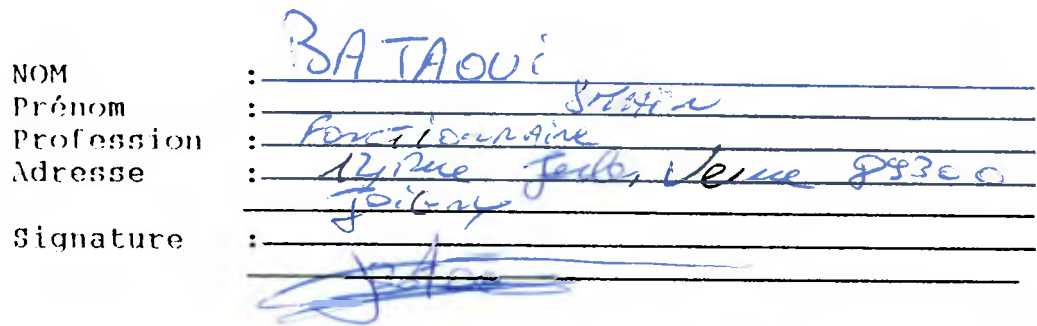 NOM : BATAOUi
Prénom : SMAiN
Profession : FONCTIONNAiRE
Adresse : Rue Jules Verne 89300
Joigny
Signature :